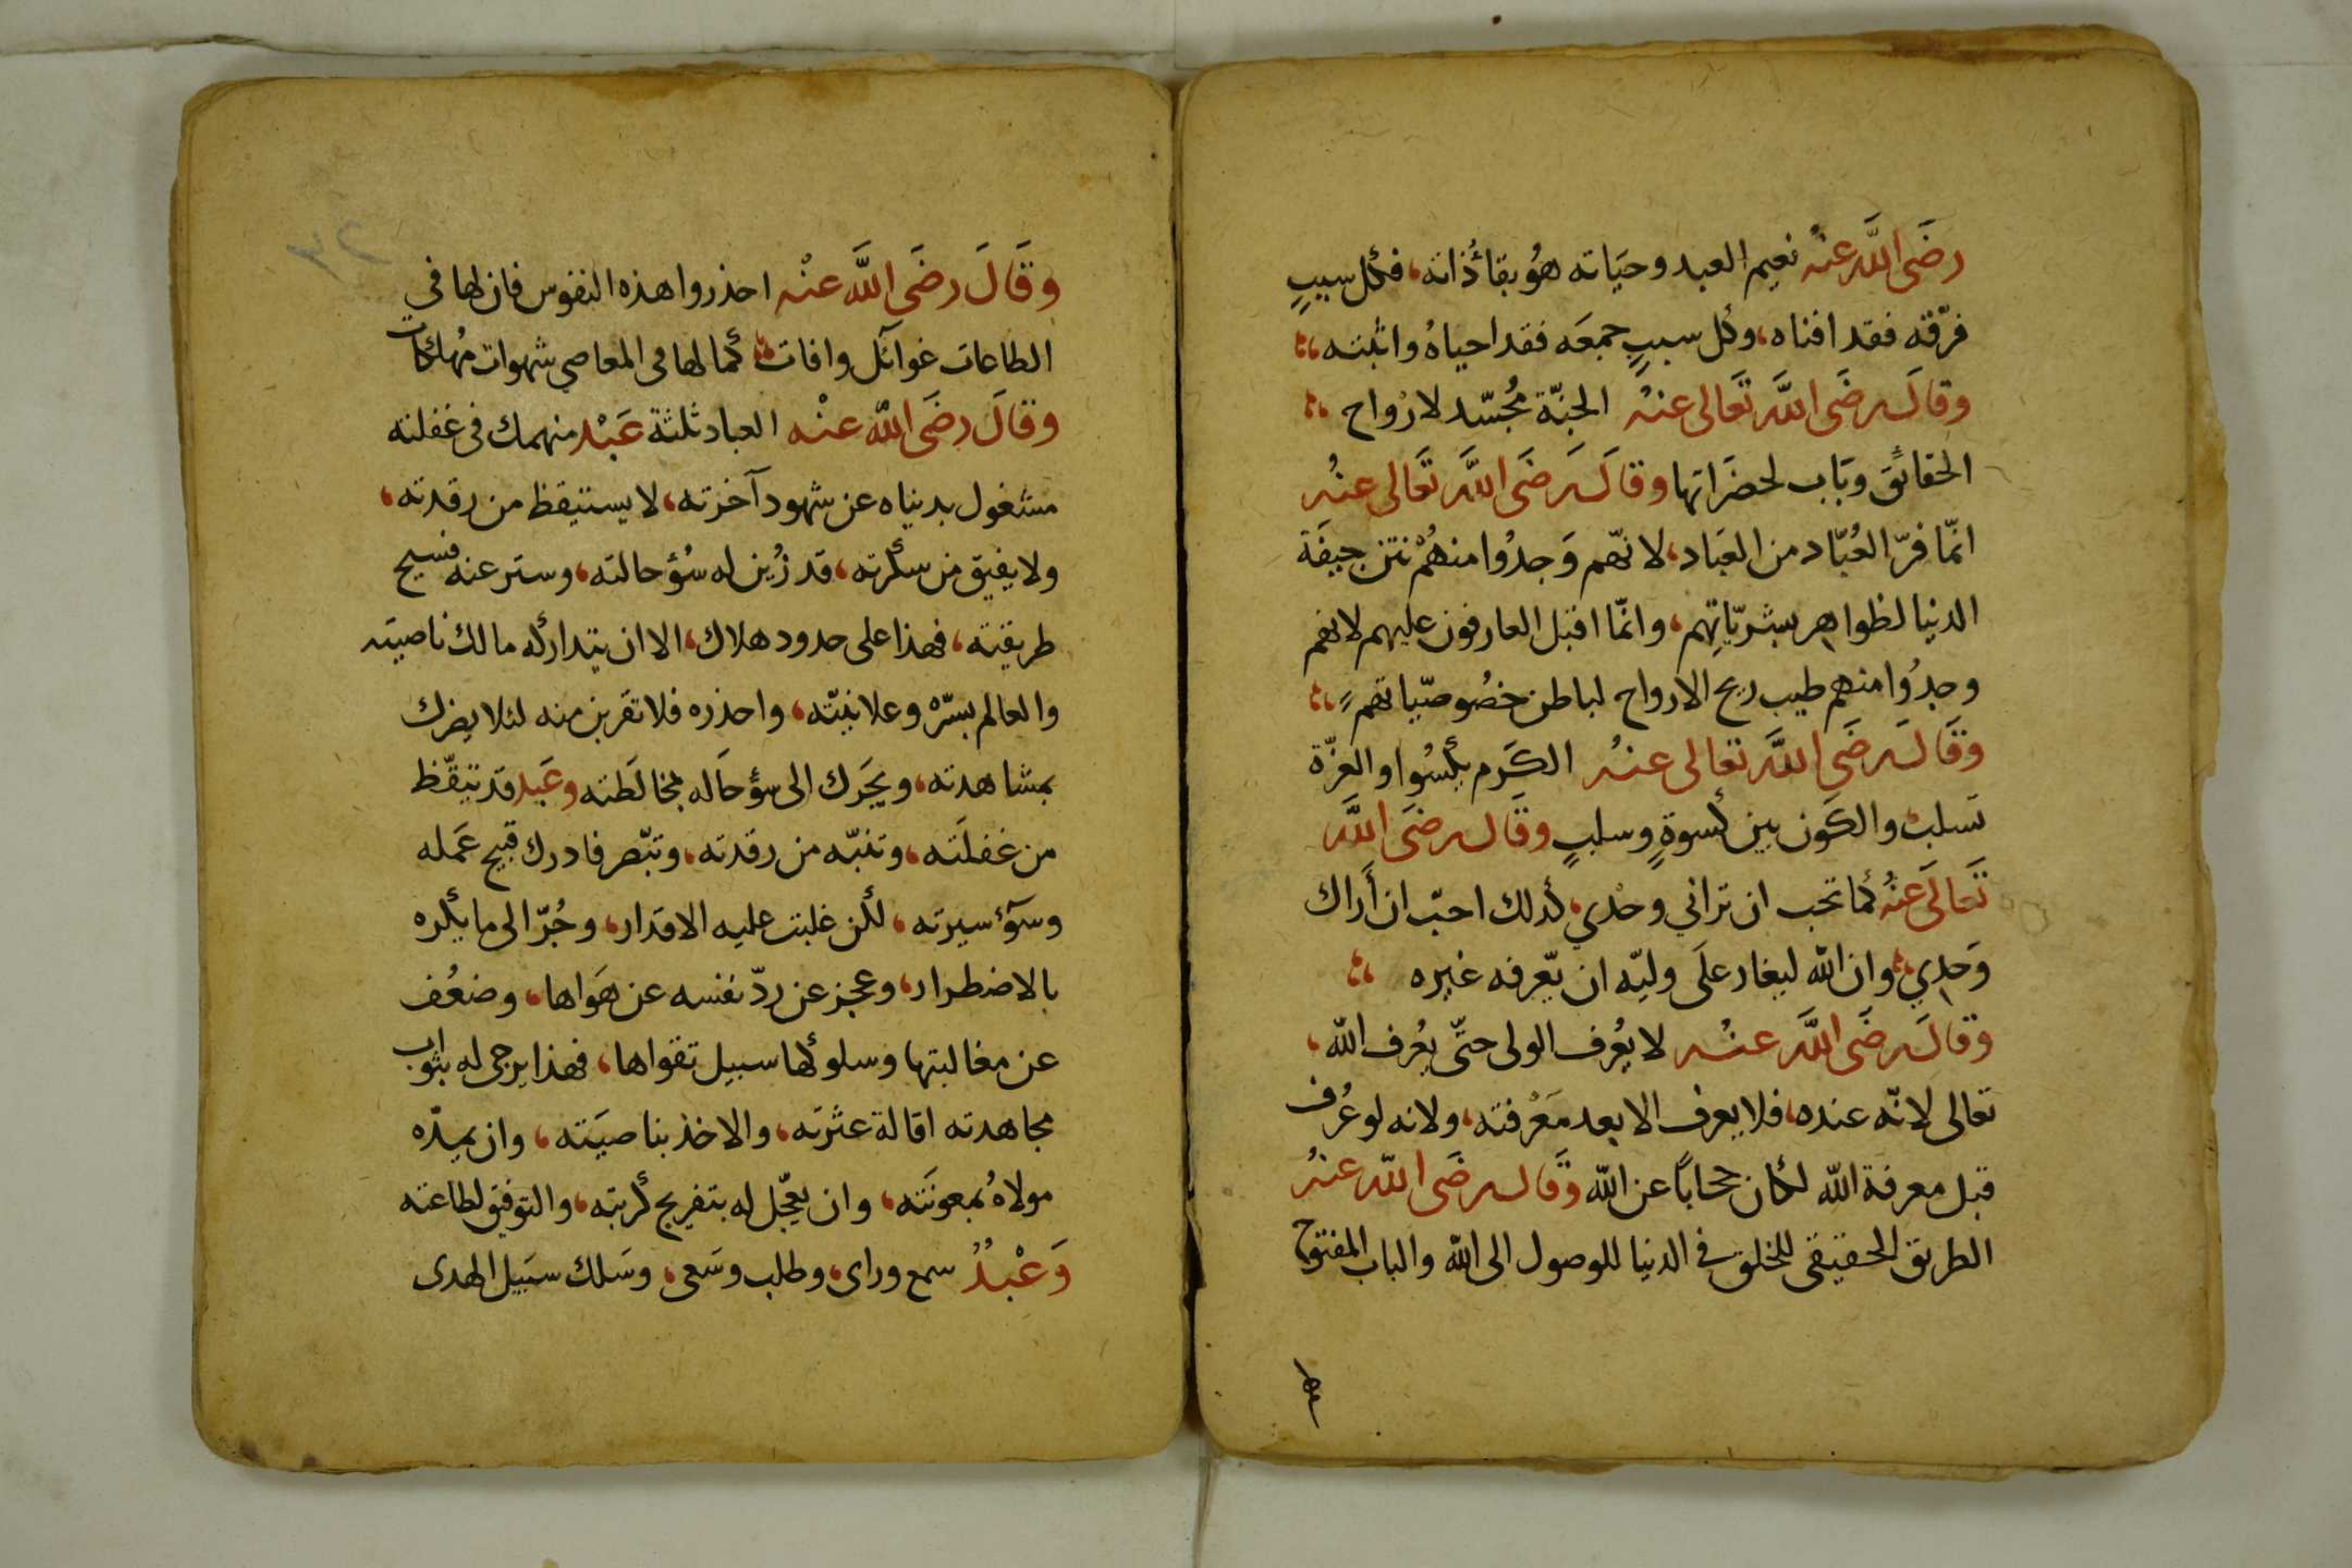 رضَى اللَّه عنْه نعيم العبد وحيَاته هوُ بقاءُذاته، فكل سببٍ
فرّقه فقد افناه، وكل سببٍ جمعَه فقد احياهُ واثبته،
وقالَ رضَى اللَّه تعَالى عنهُ الجنّة مُجسّد لارْواح
الحقائق وبَاب لحضرَاتها وقالَ رضَى اللَّه تعَالى عنهُ
انمّا فرّ العُبّاد من العبَاد، لانّهم وَجدُوا منهُمْ نتن جيفَة
الدنيا لظواهر بشريّاتِهم، وانمّا اقبل العارفون عليهم لانهم
وجدُوا منهم طيب ريح الارواح لباطن خصُوصيّاتهم،
وقَالَ رضَى اللَّه تعالى عنهُ الكَرم يكسُوا والعزّة
تسلب، والكَون بين كسوةٍ وسلبٍ وقَال رضَى اللَّه
تَعالَى عنهُ كما تحب ان تراني وحْدي، كذلك احبّ ان أراك
وَحدِي، وان الله ليغار علَى وليّه ان يّعرفه غيره
وقالَ رضَى اللَّه عنهُ لا يعُرف الولى حتّى يعُرف الله،
تعالى لانّه عنده، فلا يعرف الا بعد مَعْرفته، ولانه لو عُرف
قبل معرفة الله لكان حجاباً عن الله وقَال رضَى الله عنهُ
الطريق الحقيقى للخلق فى الدنيا للوصول الى الله والباب المفتوح
٢٣
وقَالَ رضَى اللَّه عنْه احذروا هذه النفوس فان لها في
الطاعات غوآئل وافات، كما لها فى المعاصي شهوات مُهلكات
وقالَ رضَى اللَّه عنْه العباد ثلثة عَبْد منهمك فى غفلته
مشغول بدنياه عن شهود آخرته، لا يستيقظ من رقدته،
ولا يفيق من سكرته، قد زُين له سُؤ حالته، وستر عنه فسيح
طريقته، فهذا على حدود هلاك، الا ان يتداركه مالك ناصيته
والعالم بسّره وعلانيّته، واحذره فلا تقربن منه لئلا يضرك
بمشاهدته، ويجَرك الى سؤ حَاله بمخالَطته وعَبد قد تيقّظ
من غفلَته، وتنبّه من رقدته، وتبّصر فادرك قبيح عَمله
وسوٓء سيرته، لكن غلبت عليه الاقدار، وجُرّ الى ما يكره
بالاضطرار، وعجز عن ردّ نفسه عن هَواها، وضعُف
عن مغالبتها وسلوكها سبيل تقواها، فهذا يرجى له بثواب
مجاهدته اقالة عثرته، والاخذ بناصيَته، وان يمدّه
مولاهُ بمعونَته، وان يعجّل له بتفريج كربته، والتوفيق لطاعته
وَعْبدُ سمع وراى، وطلب وسَعى، وسَلك سبَيل الهدى